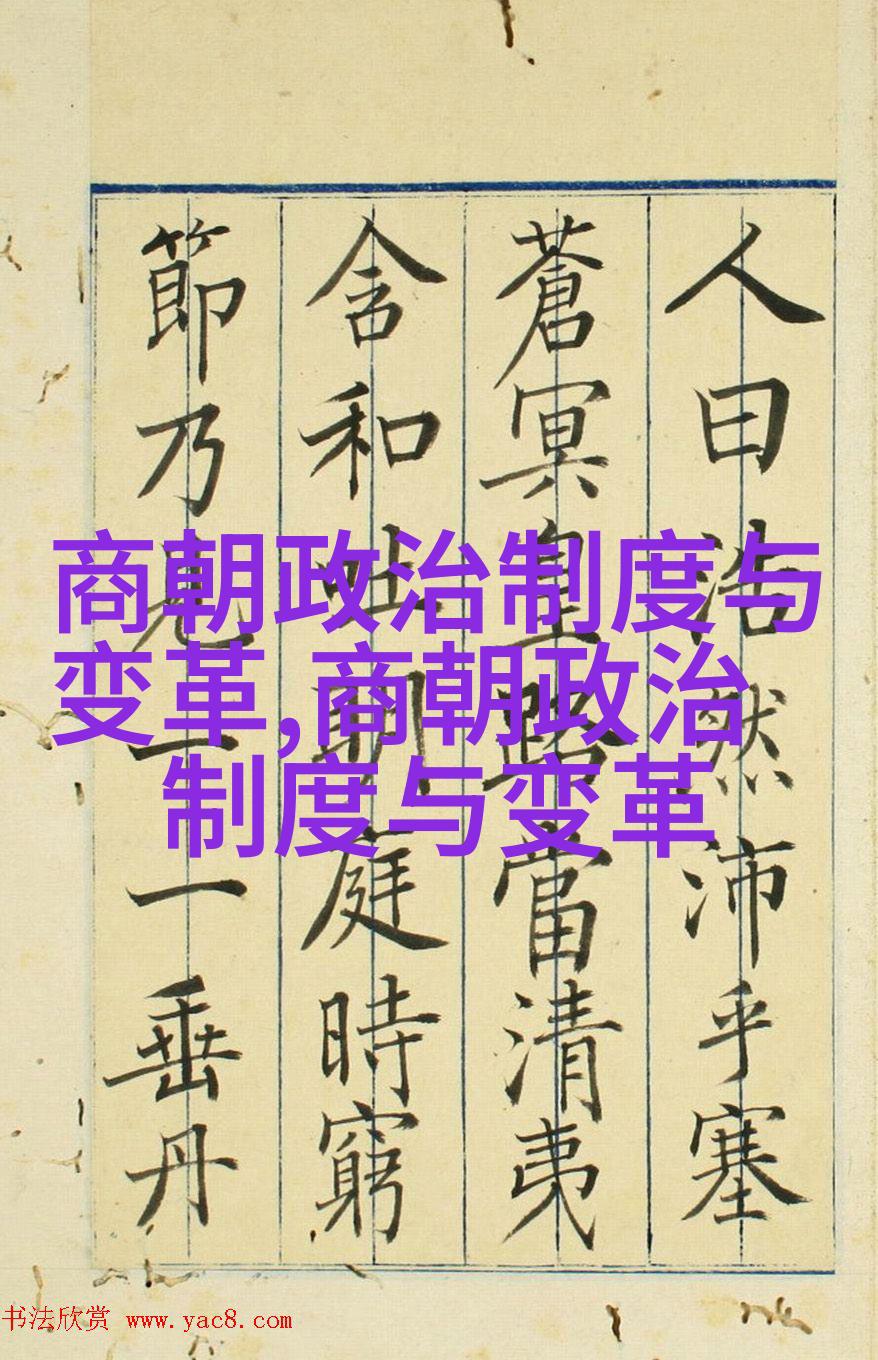 人曰浩然沛乎塞
蒼冥皇路當清夷
含和吐明庭時窮
節乃見一一垂丹
商朝政治制度与
变革,商朝政治
制度与变革
书法欣赏 www.yac8.com